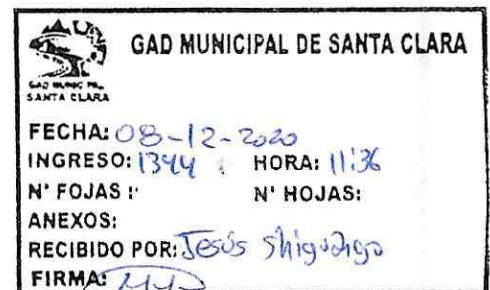 GAD MUNICIPAL DE SANTA CLARA
GAD MUNICIPAL
SANTA CLARA
FECHA: 08-12-2020
INGRESO: 1344 HORA: 11:36
N° FOJAS : N° HOJAS:
ANEXOS:
RECIBIDO POR: Jesús Shiguango
FIRMA: